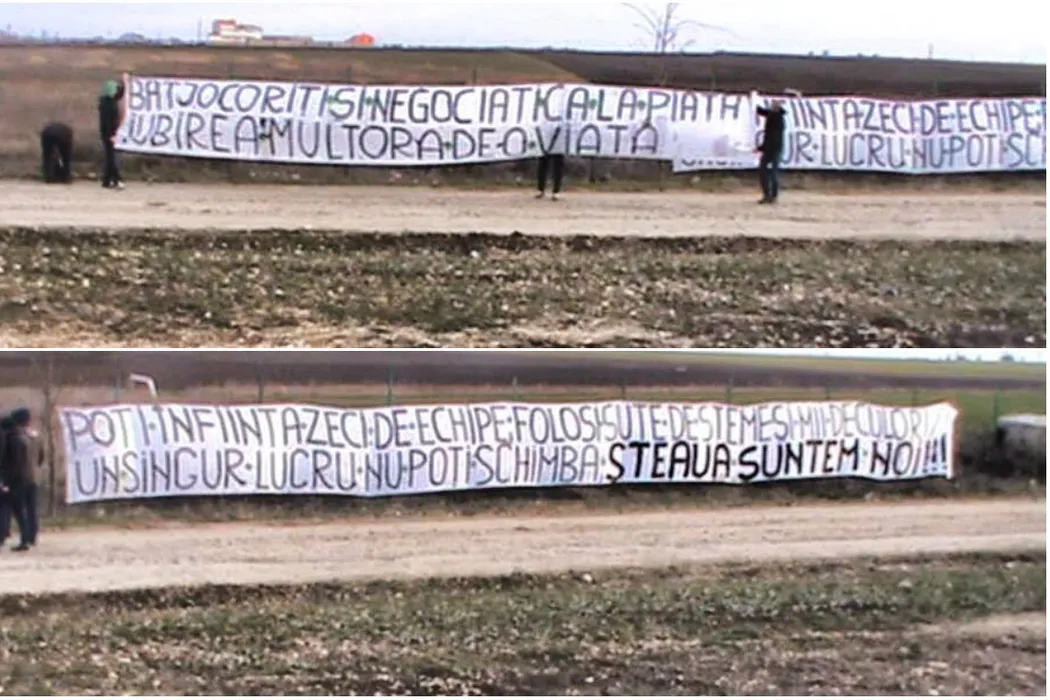 BATJOCORITI·SI·NEGOCIATI·CA·LA·PIATA
IUBIREA·MULTORA·DE·O·VIATA
FIINTA·ZECI·DE·ECHIPE·
UR·LUCRU·NU·POTI·SC
POTI·INFIINTA·ZECI·DE·ECHIPE,FOLOSI·SUTE·DE·STEME·SI·MII·DE·CULORI
UN·SiNGUR·LUCRU·NU·POTI·SCHIMBA:STEAUA·SUNTEM·NOI!!!